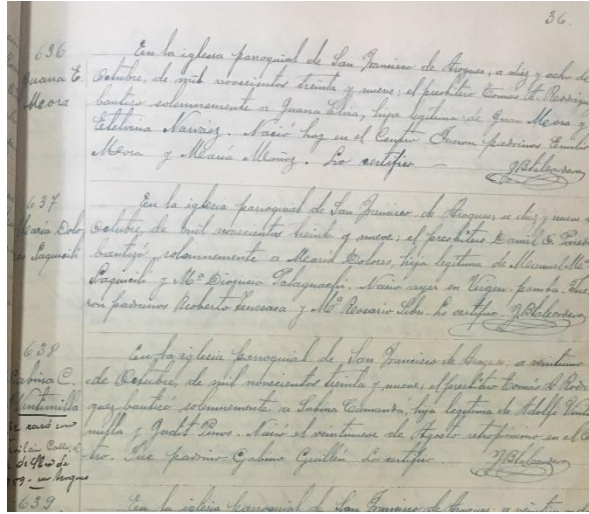 36.
636
Juana E.
Mora
En la iglesia parroquial de San Francisco de Azogues, a diez y ocho de
Octubre, de mil novecientos treinta y nueve; el presbítero Tomás A. Rodríguez
bautizó solemnemente a Juana Elisa, hija legítima de Juan Mora y
Etelvina Narvaez. Nació hoy en el Centro. Fueron padrinos Emilio
Mora y María Muñoz. Lo certifico —
637
María Dolo
En la iglesia parroquial de San Francisco de Azogues, a diez y nueve
Octubre, de mil novecientos treinta y nueve; el presbítero Daniel
bautizó, solemnemente a María Dolores, hija legítima de Manuel Mª
y Mª Nació ayer en Virgen-pamba. Fue
ron padrinos Roberto y Mª Rosario Lo certifico
638
Sabina C.
Vintimilla
En la iglesia parroquial de San Francisco de Azogues, a veintiuno
de Octubre, de mil novecientos treinta y nueve; el presbítero Tomás A. Rodrí
guez bautizó solemnemente a Sabina hija legítima de Adolfo Vinti
milla y Judit Pinos. Nació el veintinueve de Agosto en el Cen
tro. Fue padrino Gabino Guillén. Lo certifico
639
En la iglesia parroquial de San Francisco de Azogues, a